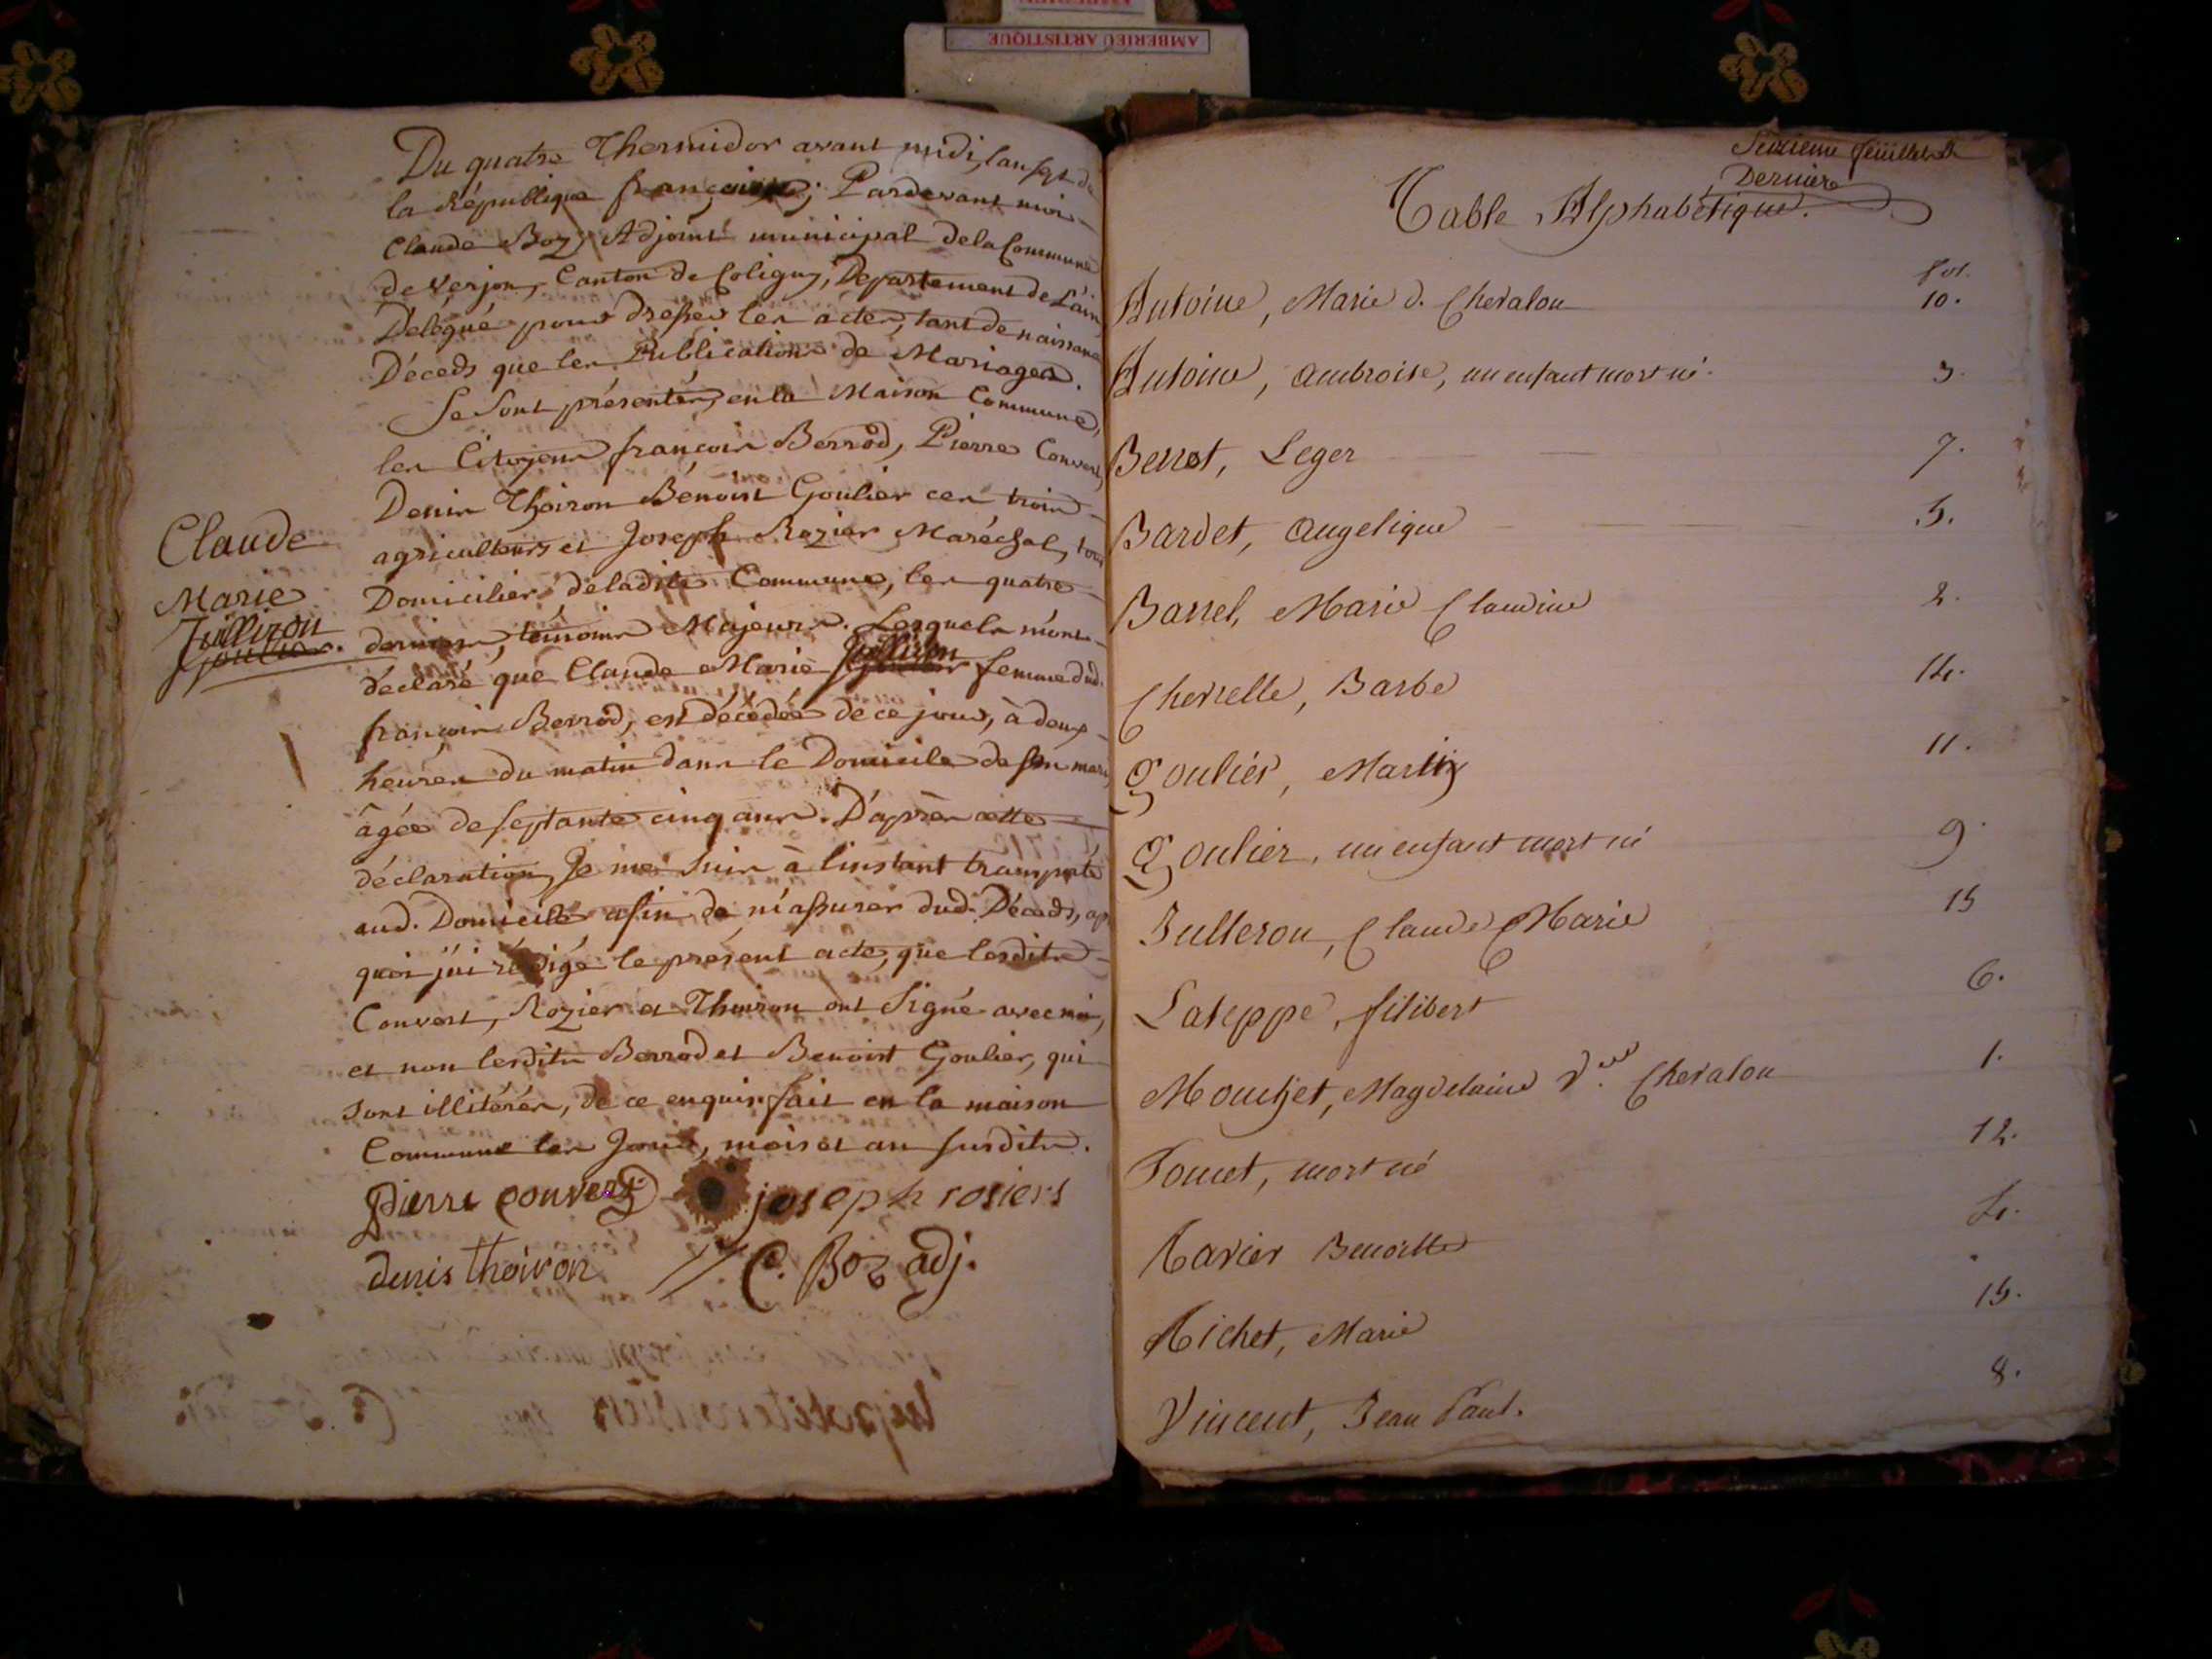 AMBERIEU ARTISTIQUE
Du quatre Thermidor avant midi, l'an sept de
la République françoise; Pardevant moi
Claude Boz, Adjoint municipal de la Commune
de Verjon, Canton de Coligny, Departement de L'ain
Délégué pour dresser les actes, tant de naissance
Déceds que les Publications de Mariages.
Se sont présentés, en la Maison Commune,
les Citoyens françois Berrod, Pierre Convert,
Denis Thoiron Bénoist Goulier ces trois
agriculteurs et Joseph Rozier Maréchal, tous
Domiciliés de ladite Commune, les quatre
derniers, témoins Majeurs. Lesquels m'ont
déclaré que Claude Marie Juilliron femme dud.
françois Berrod, est décédée de ce jour, à deux
heures du matin dans le Domicile de son mari,
âgée de septante cinq ans. D'après cette
déclaration, Je me suis à l'instant transporté
aud. Domicile afin de m'assurer dud. Déceds, ap
quoi j'ai rédigé le présent acte, que lesdits
Convert, Rozier et Thoiron ont signé avec moi,
et non lesdits Berrod et Benoist Goulier, qui
sont illitérés, de ce enquis fait en la maison
Commune les Jour, mois et an susdits.
pierre convert joseph rosiers
denis thoiron C. Boz adj.
Claude
Marie
Juilliron
Goulier.
Seizieme feüillet &
Derniere
Table Alphabétique.
fol.
Antoine, Marie d. Chevalon 10.
Antoine, ambroise, un enfant mort né. 3.
Berrot, Leger 7.
Bardet, angelique 5.
Barrel, Marie Claudine 2.
Cherrelle, Barbe 14.
Goulier, Marin 11.
Goulier, un enfant mort né 9.
Julleron, Claude Marie 15
Lateppe, filibert 6.
Mouchet, Magdelaine Vve Chevalon 1.
Poncet, mort né 12.
Ravier Benoitte 4.
Richet, Marie 15.
Vincent, Jean Paul. 8.